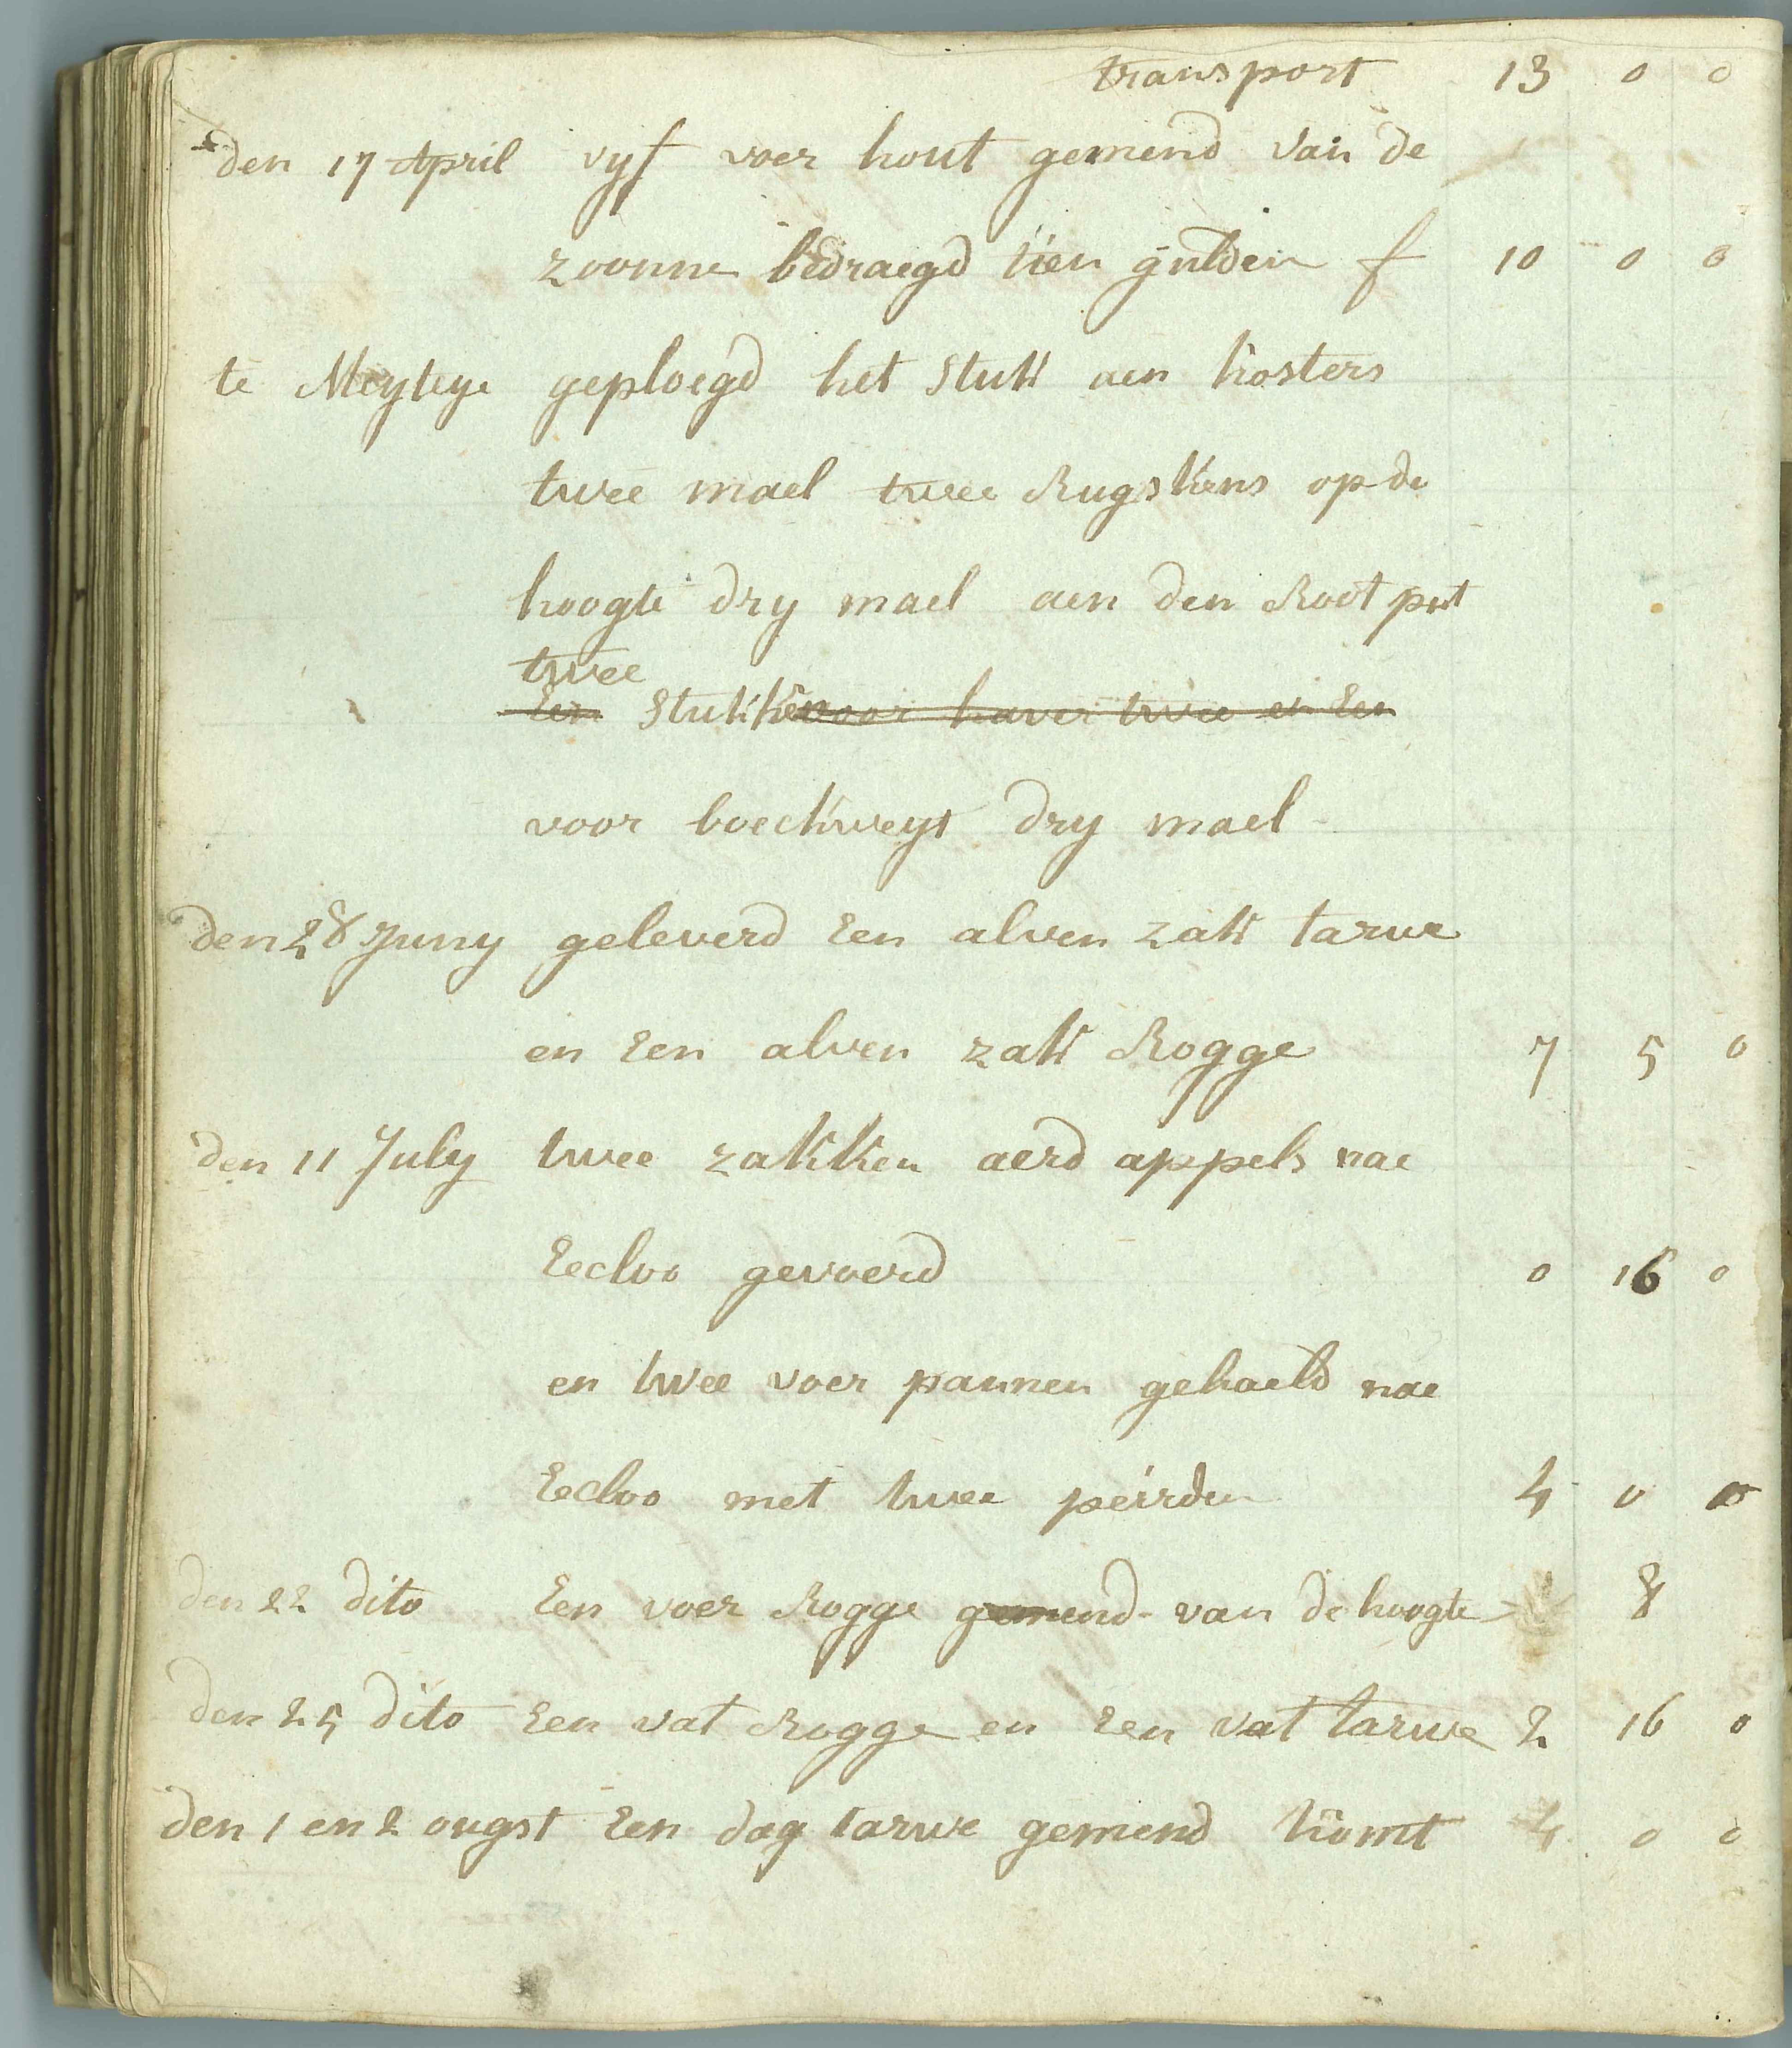 transport 13 0 0
den 17 April vyf voer hout gemend van de
zoonne bedraegd tien gulden f 10 0 0
te Meytye geploegd het stuk aen kosters
twee mael twee Rugskens op de
hoogte dry mael aen den Root put
twee
Een stukken voor haver twee en Een
voor boeckweyt dry mael
den 28 Juny geleverd Een alven zak tarwe
en Een alven zak Rogge 7 5 0
den 11 July twee zakken aerd appels nae
Eecloo gevoerd 0 16 0
en twee voer pannen gehaeld nae
Eecloo met twee peirden 4 0 0
den 22 dito Een voer Rogge gemend van de hoogte 8
den 25 dito Een vat Rogge en Een vat tarwe 2 16 0
den 1 en 2 ougst Een dag tarwe gemend komt 4 0 0